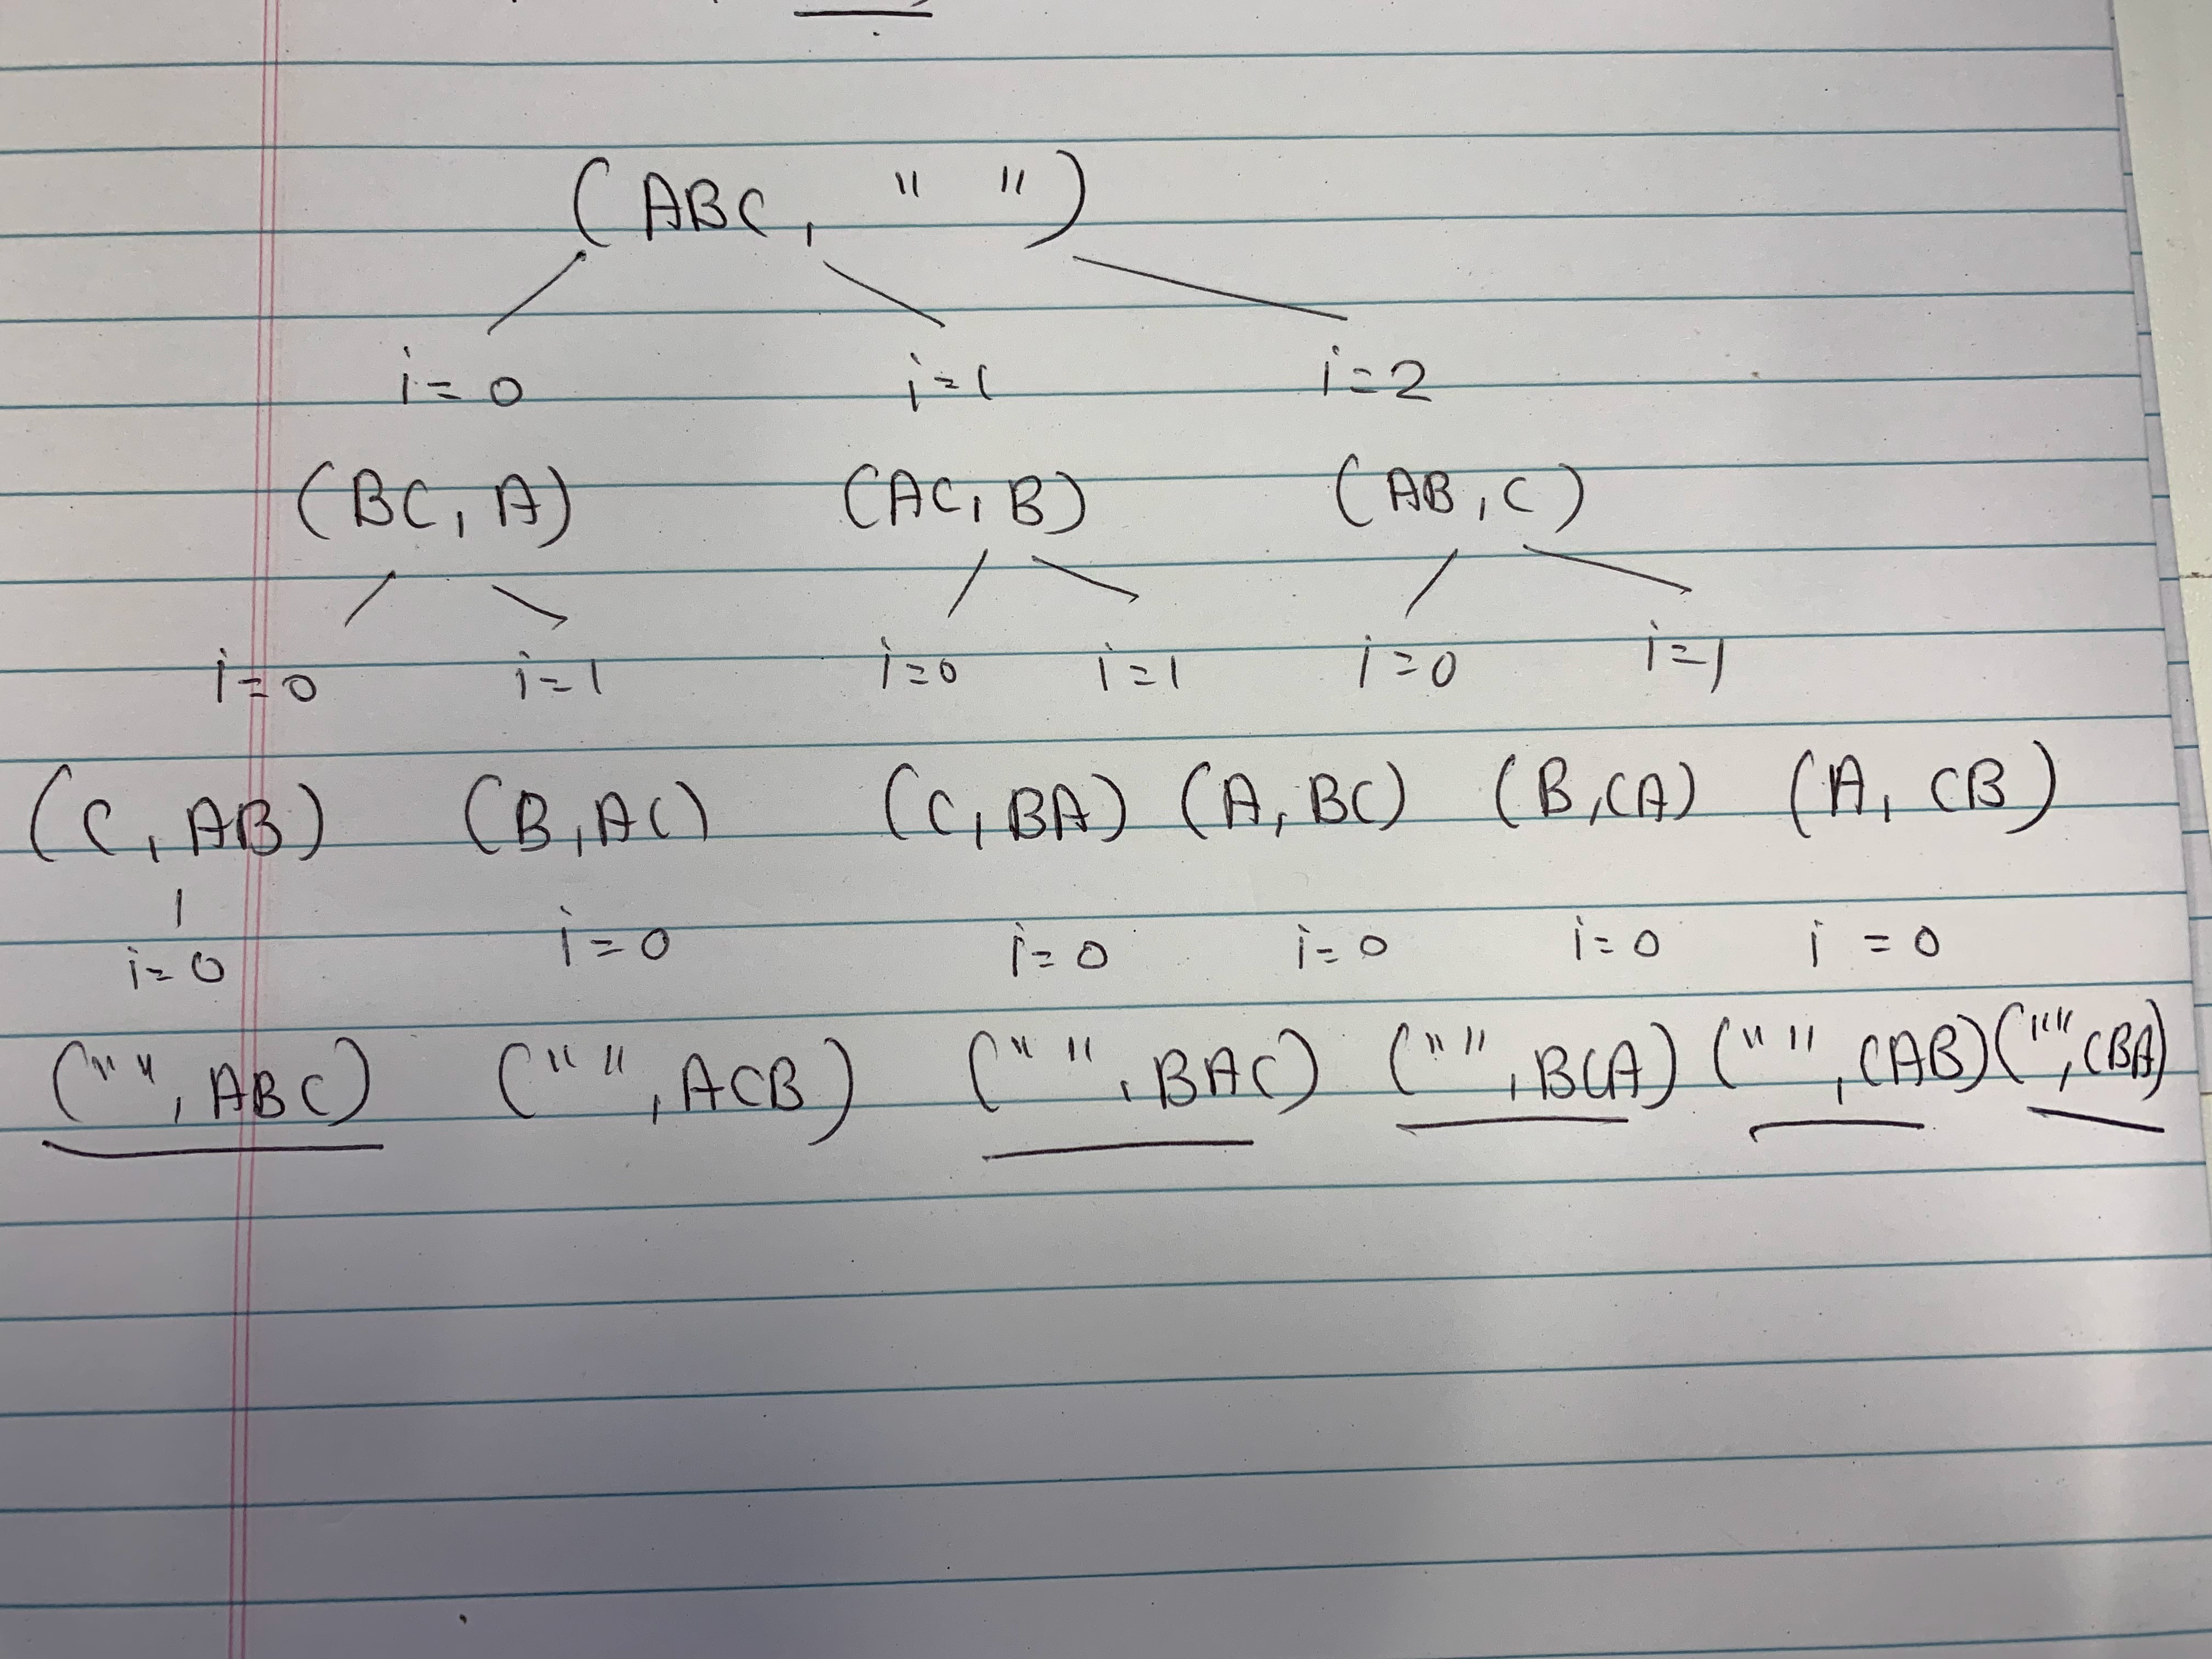 (ABC, " ")
i=0 i=1 i=2
(BC, A) (AC, B) (AB, C)
i=0 i=1 i=0 i=1 i=0 i=1
(C, AB) (B, AC) (C, BA) (A, BC) (B, CA) (A, CB)
i=0 i=0 i=0 i=0 i=0 i=0
(" ", ABC) (" ", ACB) (" ", BAC) (" ", BCA) (" ", CAB) ("", CBA)